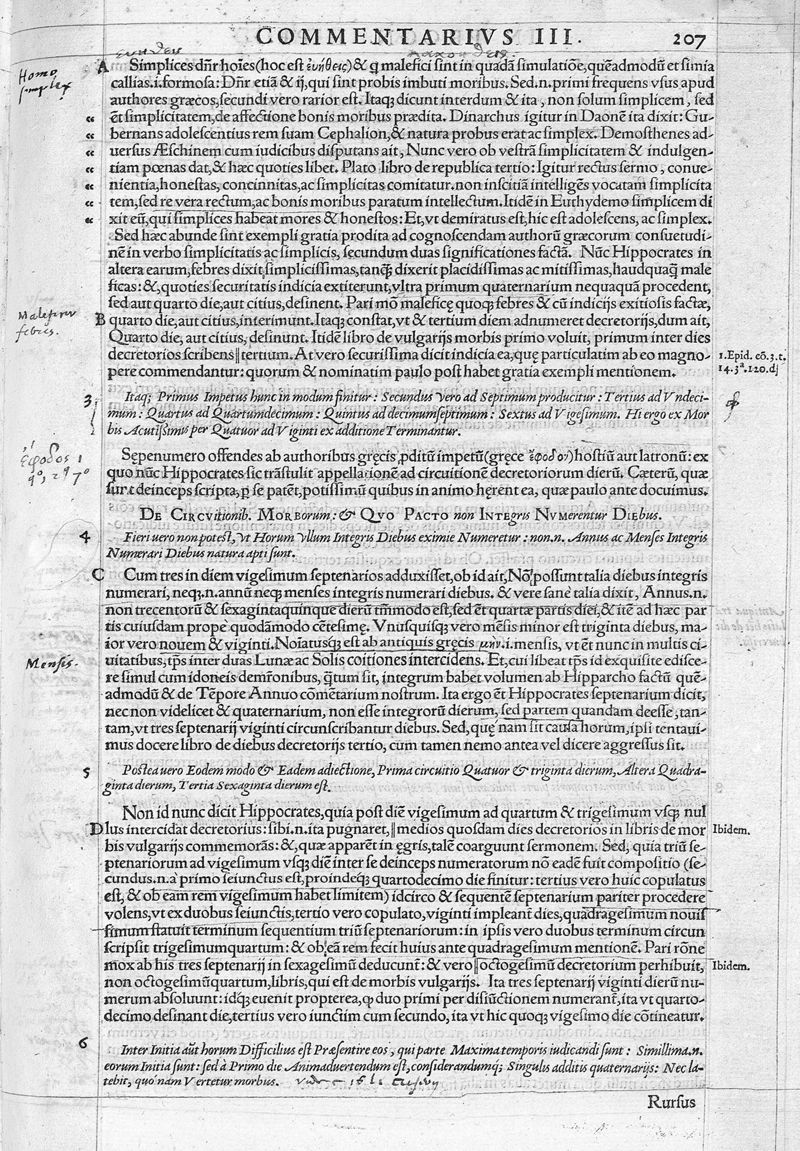 COMMENTARIVS III. 207
Homo
simplex
A Simplices dñr hoïes (hoc est ἐυήθεις) & q̃ malefici sint in quadã simulatiõe, quẽadmodũ et simia
callias .i. formosa: Dñr etiã & ij, qui sint probis imbuti moribus. Sed .n. primi frequens vsus apud
authores græcos, secundi vero rarior est. Itaq; dicunt interdum & ita, non solum simplicem, sed
ẽt simplicitatem, de affectione bonis moribus prædita. Dinarchus igitur in Daonẽ ita dixit: Gu-
bernans adolescentius rem suam Cephalion, & natura probus erat ac simplex. Demosthenes ad-
uersus Æschinem cum iudicibus disputans ait, Nunc vero ob vestrã simplicitatem & indulgen-
tiam pœnas dat, & hæc quoties libet. Plato libro de republica tertio: Igitur rectus sermo, conue-
nientia, honestas, concinnitas, ac simplicitas comitatur. non inscitiã intelligẽs vocatam simplicita
tem, sed re vera rectum, ac bonis moribus paratum intellectum. Itidẽ in Euthydemo simplicem di
xit eũ, qui simplices habeat mores & honestos: Et, vt demiratus est, hic est adolescens, ac simplex.
Sed hæc abunde sint exempli gratia prodita ad cognoscendam authorũ græcorum consuetudi-
nẽ in verbo simplicitatis ac simplicis, secundum duas significationes factã. Nũc Hippocrates in
altera earum, febres dixit, simplicissimas, tanq̃ dixerit placidissimas ac mitissimas, haudquaq̃ male
ficas: &, quoties securitatis indicia extiterunt, vltra primum quaternarium nequaquã procedent,
sed aut quarto die, aut citius, desinent. Pari mõ maleficę quoq; febres & cũ indicijs exitiosis factæ,
B quarto die, aut citius, interimunt. Itaq; constat, vt & tertium diem adnumeret decretorijs, dum ait,
Quarto die, aut citius, desinunt. Itidẽ libro de vulgarijs morbis primo voluit, primum inter dies
decretorios scribens || tertium. At vero securissima dicit indicia ea, quę particulatim ab eo magno-
pere commendantur: quorum & nominatim paulo post habet gratia exempli mentionem.
febres.
1. Epid. cõ. 3. t.
14. 3ª. 120. dj
3 Itaq; Primus Impetus hunc in modum finitur: Secundus vero ad Septimum producitur: Tertius ad Vndeci-
mum: Quartus ad Quartumdecimum: Quintus ad decimumseptimum: Sextus ad Vigesimum. Hi ergo ex Mor
bis Acutissimis per Quatuor ad Viginti ex additione Terminantur.
Sępenumero offendes ab authoribus gręcis, p̃ditũ impetũ (gręce ἔφοδον) hostiũ aut latronũ: ex
quo nũc Hippocrates sic trãstulit appellationẽ ad circuitionẽ decretoriorum dierũ. Cæterũ, quæ
sunt deinceps scripta, p se patẽt, potissimũ quibus in animo hęrent ea, quæ paulo ante docuimus.
ἔφοδος
DE CIRCVitionib. MORBorum: & QVO PACTO non INTEgris NVMErentur DIebus.
4 Fieri uero non potest, Vt Horum Vllum Integris Diebus eximie Numeretur: non .n. Annus ac Menses Integris
Numerari Diebus natura apti sunt.
C Cum tres in diem vigesimum septenarios adduxisset, ob id ait, Nõ possunt talia diebus integris
numerari, neq; .n. annũ neq; menses integris numerari diebus. & vere sane talia dixit, Annus .n.
non trecentorũ & sexagintaquinque dierũ tm̃modo est, sed ẽt quartæ partis diei, & itẽ ad hæc par
tis cuiusdam prope quodãmodo cẽtesimę. Vnusquisq; vero mẽsis minor est triginta diebus, ma-
ior vero nouem & viginti. Noĩatusq; est ab antiquis gręcis μὴν .i. mensis, vt ẽt nunc in multis ci-
uitatibus, tp̃s inter duas Lunæ ac Solis coitiones intercidens. Et, cui libeat tp̃s id exquisite edisce-
re simul cum idoneis demr̃onibus, q̃tum sit, integrum habet volumen ab Hipparcho factũ quẽ-
admodũ & de Tẽpore Annuo cõmẽtarium nostrum. Ita ergo ẽt Hippocrates septenarium dicit,
nec non videlicet & quaternarium, non esse integrorũ dierum, sed partem quandam deesse, tan-
tam, vt tres septenarij viginti circunscribantur diebus. Sed, quę nam sit causa horum, ipsi tentaui-
mus docere libro de diebus decretorijs tertio, cum tamen nemo antea vel dicere aggressus sit.
Mensis.
5 Postea uero Eodem modo & Eadem adiectione, Prima circuitio Quatuor & triginta dierum, Altera Quadra-
ginta dierum, Tertia Sexaginta dierum est.
Non id nunc dicit Hippocrates, quia post diẽ vigesimum ad quartum & trigesimum vsq; nul
D lus intercidat decretorius: sibi .n. ita pugnaret, || medios quosdam dies decretorios in libris de mor
bis vulgarijs commemorãs: &, quæ apparẽt in ęgris, talẽ coarguunt sermonem. Sed, quia triũ se-
ptenariorum ad vigesimum vsq; diẽ inter se deinceps numeratorum nõ eadẽ fuit compositio (se-
cundus .n. a primo seiunctus est, proindeq; quartodecimo die finitur: tertius vero huic copulatus
est, & ob eam rem vigesimum habet limitem) idcirco & sequentẽ septenarium pariter procedere
volens, vt ex duobus seiunctis, tertio vero copulato, viginti impleant dies, quadragesimum nouis
simum statuit terminum sequentium triũ septenariorum: in ipsis vero duobus terminum circun
scripsit trigesimumquartum: & ob eã rem fecit huius ante quadragesimum mentionẽ. Pari rõne
mox ab his tres septenarij in sexagesimũ deducunt: & vero || octogesimũ decretorium perhibuit,
non octogesimũquartum, libris, qui est de morbis vulgarijs. Ita tres septenarij viginti dierũ nu-
merum absoluunt: idq; euenit propterea, q duo primi per disiũctionem numerant, ita vt quarto-
decimo desinant die, tertius vero iunctim cum secundo, ita vt hic quoq; vigesimo die cõtineatur.
Ibidem.
Ibidem.
6 Inter Initia aũt horum Difficilius est Præsentire eos, qui parte Maxima temporis iudicandi sunt: Simillima .n.
eorum Initia sunt: sed à Primo die Animaduertendum est, considerandumq; Singulis additis quaternarijs: Nec la-
tebit, quo nam Vertetur morbus.
Rursus